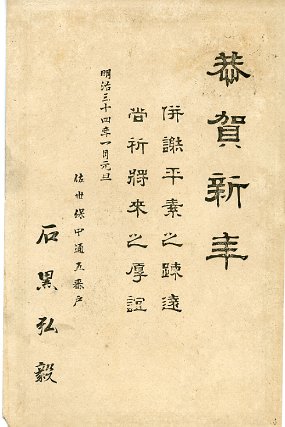 恭賀新年
併謝平素之疎遠
尚祈将来之厚誼
明治三十四年一月元旦
佐世保中通五番戸
石黒弘毅